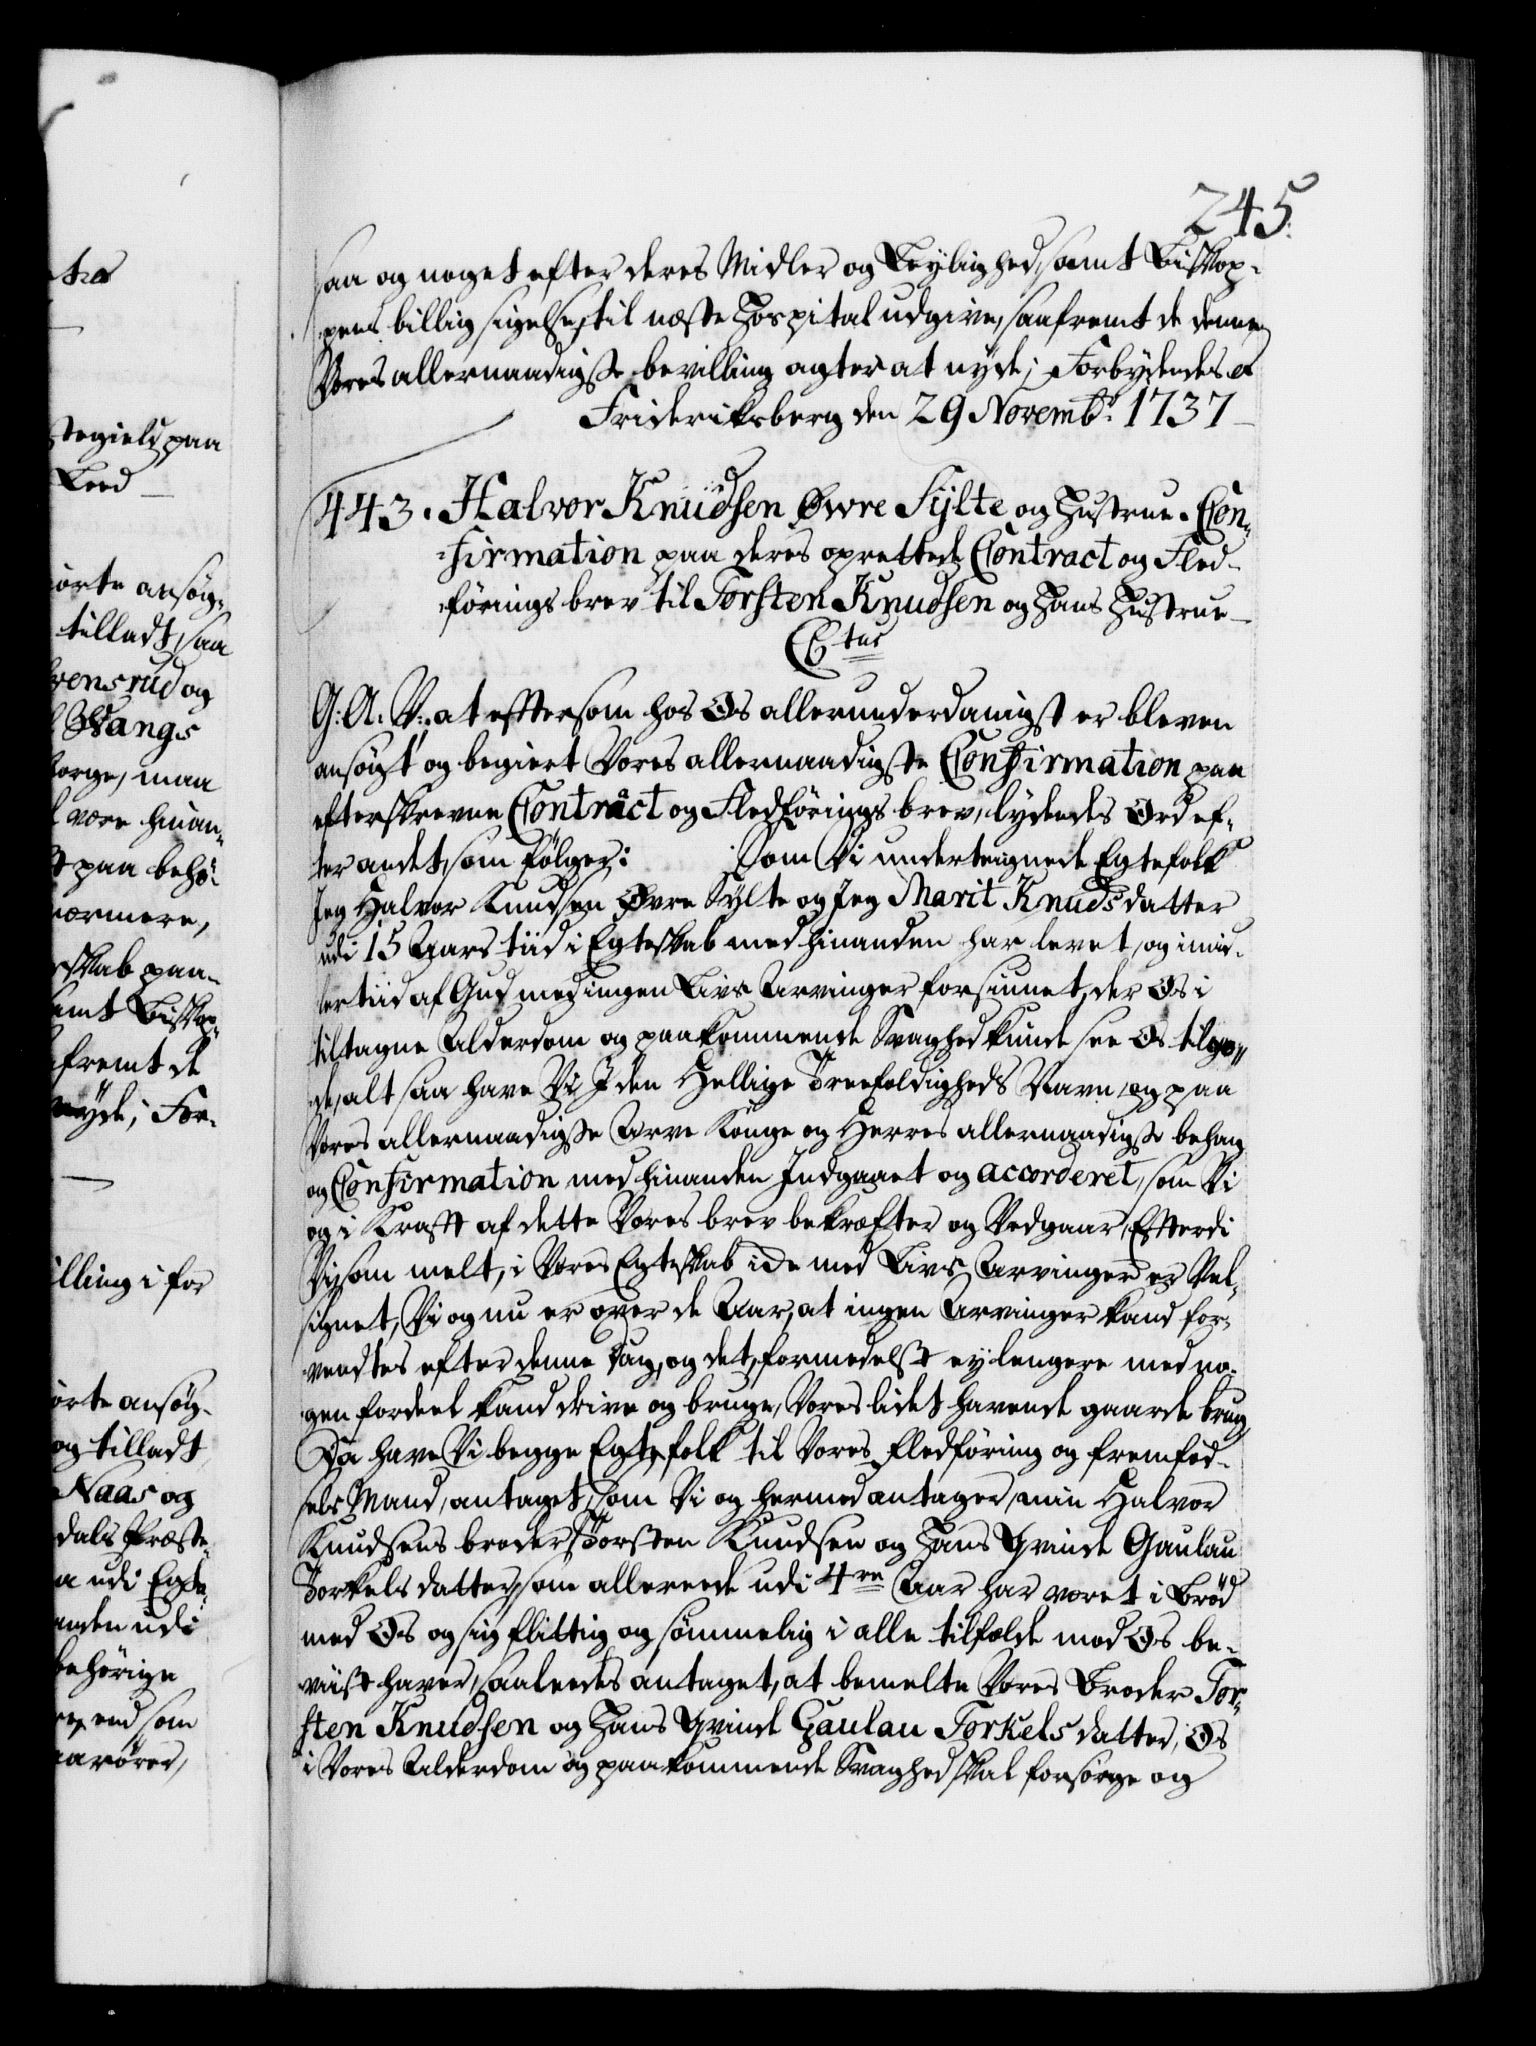 245.
saa og noget efter deres Midler og Leylighed, samt Biskop-
pens billig sigelse, til næste Hospital udgive, saafremt de denne
Vores allernaadigste bevilling agter at nyde; Forbydendes &
Frideriksberg den 29 Novembr: 1737
443. Halvor Knudsen Øvre Sylte og Hustrue. Con-
firmation paa deres oprettede Contract og Fled-
førings brev til Torsten Knudsen og Hans Hustrue
C6tus
G: A: V: at efftersom hos Os allerunderdanigst er bleven
ansøgt og begiert Vores allernaadigste Confirmation paa
efterskrevne Contract og Fledførings brev, lydendes Ord ef-
ter andet, som følger: Som Vi underteignede Egtefolk
Jeg Halvor Knudsen Øvre Sylte og Jeg Marit Knudsdatter
udi 15 Aars tiid i Egteskab med hinanden har levet, og imid-
lertiid af Gud med ingen Livs Arvinger forsiunet, der Os i
tiltagne Alderdom og paakommende Svaghed kunde see Os tilgo-
de, alt saa have Vi J den Hellige Treefoldigheds Navn, og paa
Vores allernaadigste Arve Konge og Herres allernaadigste behag
og Confirmation med hinanden Indgaaet og accorderet, som Vi
og i Krafft af dette Vores brev bekræfter og Vedgaar, Efterdi
Vi, som melt, i Vores Egteskab icke med Livs Arvinger er Vel-
signet, Vi og nu er over de Aar, at ingen Arvinger kand for-
ventes efter denne Dag, og det, formedelst ey lengere med no-
gen fordeel kand drive og bruge, Vores lidet havende gaarde brug
Da have Vi begge Egtefolk til Vores fledføring og fremfød-
sels Mand, antaget, som Vi og hermed antager, min Halvor
Knudsens broder Torsten Knudsen og Hans Qvinde Gaulau
Torkelsdatter, som allereede udi 4re Aar har været i Brød
med Os og sig flittig og sømmelig i alle tilfælde mod Os be-
viist haver, saaleedes antaget, at bemelte Vores Broder Tor-
sten Knudsen og Hans Qvinde Gaulau Torkelsdatter, Os
i Vores Alderdom og paakommende Svaghed skal forsørge og